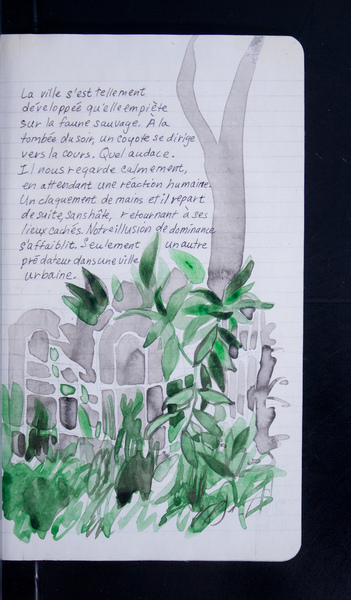 La ville s'est tellement
développée qu'elle empiète
sur la faune sauvage. À la
tombée du soir, un coyote se dirige
vers la cour. Quel audace.
Il nous regarde calmement,
en attendant une réaction humaine.
Un claquement de mains et il repart
de suite, sans hâte, retournant à ses
lieux cachés. Notre illusion de dominance
s'affaiblit. Seulement un autre
prédateur dans une ville
urbaine.